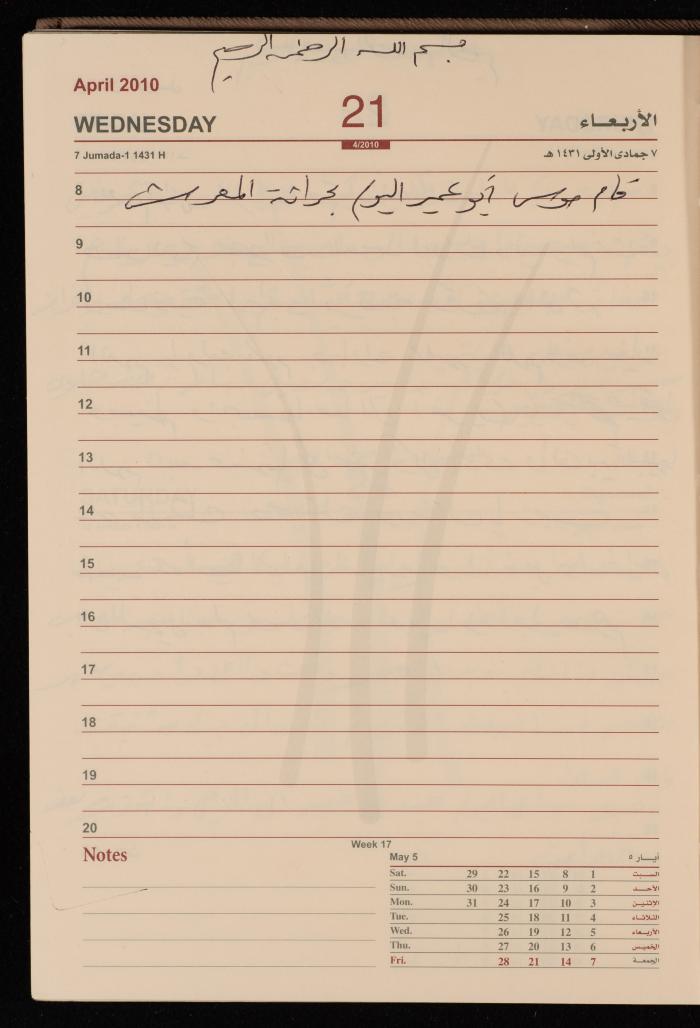 بسم الله الرحمن الرحيم
April 2010
WEDNESDAY 21 الأربعاء
4/2010
7 Jumada-1 1431 H ٧ جمادى الأولى ١٤٣١ هـ
8 قام موسى أبو عمير اليوم بحراثة
9
10
11
12
13
14
15
16
17
18
19
20
Week 17
Notes
May 5 أيـار ٥
Sat. 29 22 15 8 1 السبت
Sun. 30 23 16 9 2 الأحد
Mon. 31 24 17 10 3 الإثنين
Tue. 25 18 11 4 الثلاثاء
Wed. 26 19 12 5 الأربعاء
Thu. 27 20 13 6 الخميس
Fri. 28 21 14 7 الجمعة